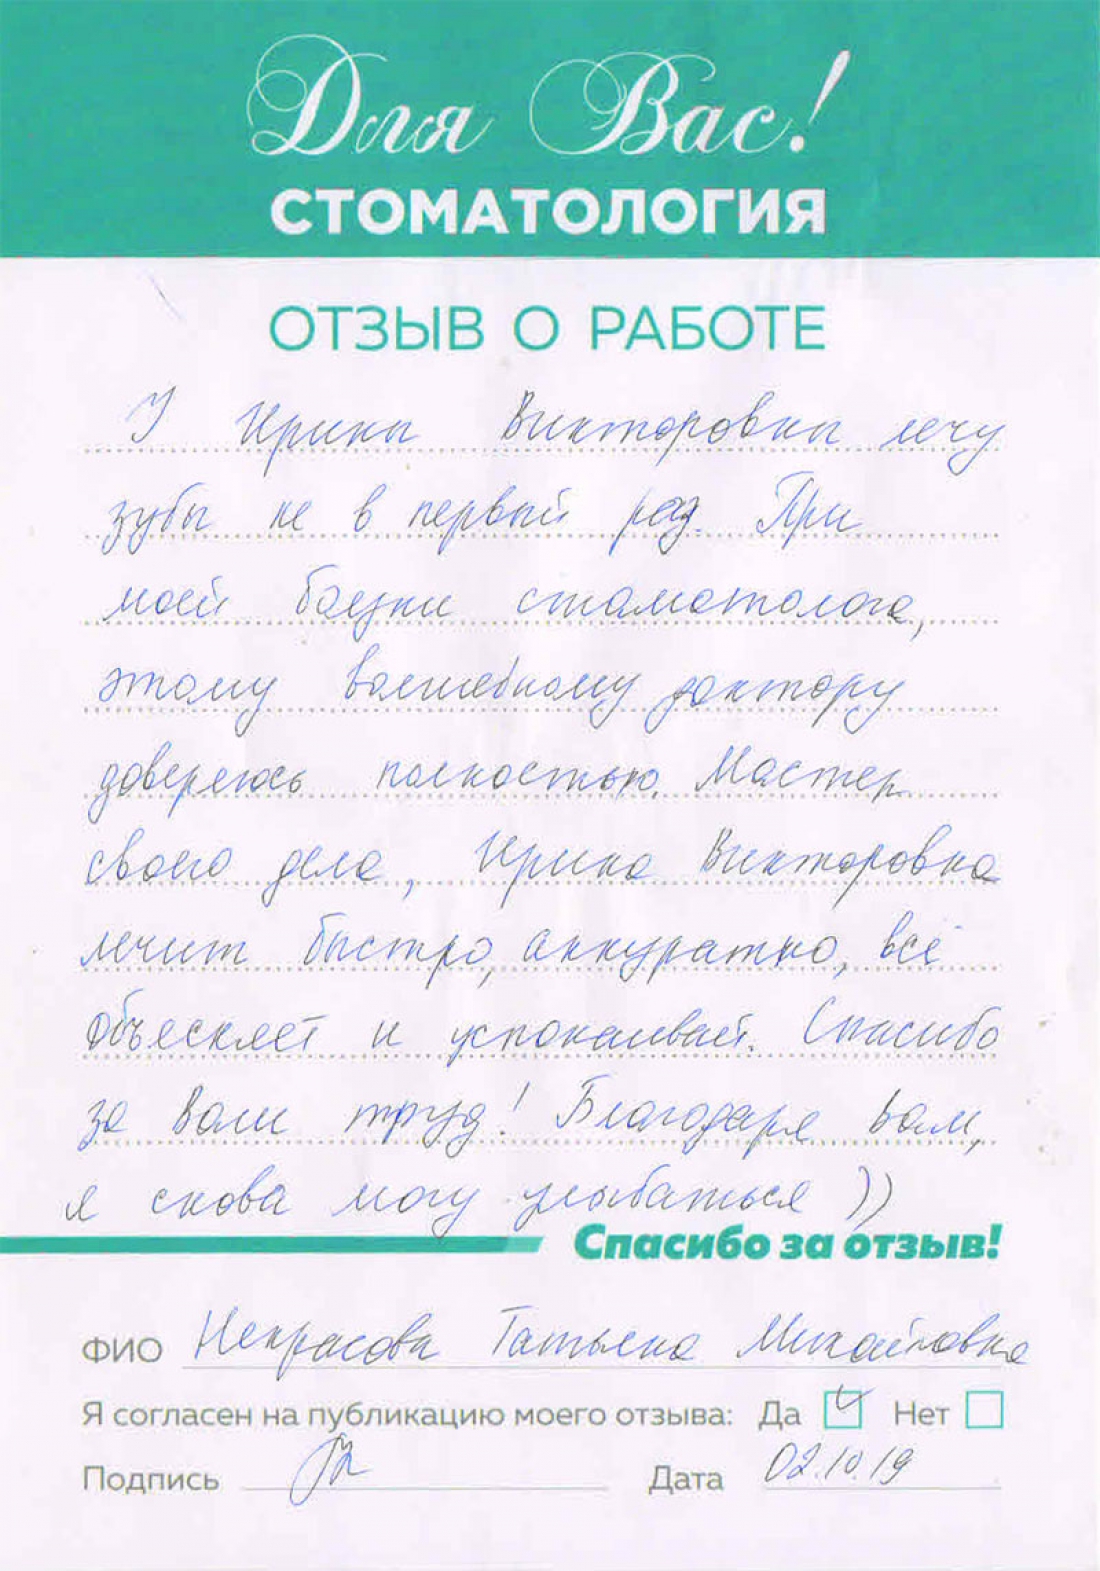 Для Вас!
СТОМАТОЛОГИЯ
ОТЗЫВ О РАБОТЕ
У Ирины Викторовны лечу
зубы не в первый раз. При
моей боязни стоматолога,
этому волшебному доктору
доверяюсь полностью. Мастер
своего дела, Ирина Викторовна
лечит быстро, аккуратно, всё
объясняет и успокаивает. Спасибо
за Ваш труд! Благодаря Вам,
я снова могу улыбаться ))
Спасибо за отзыв!
ФИО Некрасова Татьяна Михайловна
Я согласен на публикацию моего отзыва: Да Нет
Подпись Дата 02.10.19